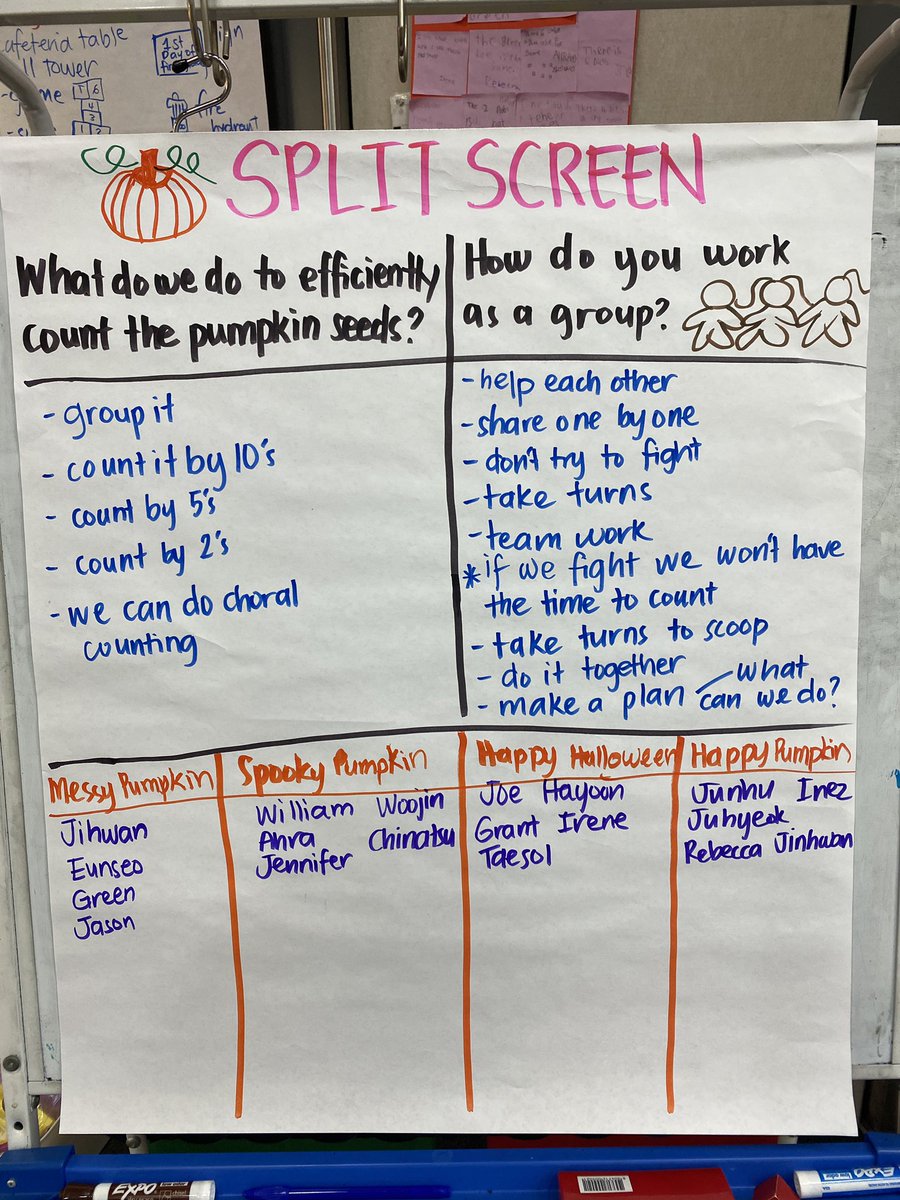 afeteria table
ll tower
1st
Day of
fire
hydrant
SPLIT SCREEN
What do we do to efficiently
count the pumpkin seeds?
How do you work
as a group?
- group it
- count it by 10's
- count by 5's
- count by 2's
- we can do choral
counting
- help each other
- share one by one
- don't try to fight
- take turns
- team work
* if we fight we won't have
the time to count
- take turns to scoop
- do it together
- make a plan - what
can we do?
Messy Pumpkin
Jihwan
Eunseo
Green
Jason
Spooky Pumpkin
William Woojin
Ahra Chinatsu
Jennifer
Happy Halloween
Joe Hayoon
Grant Irene
Taesol
Happy Pumpkin
Junhu Inez
Juhyeok
Rebecca Jinhwan
EXPO
EXPO